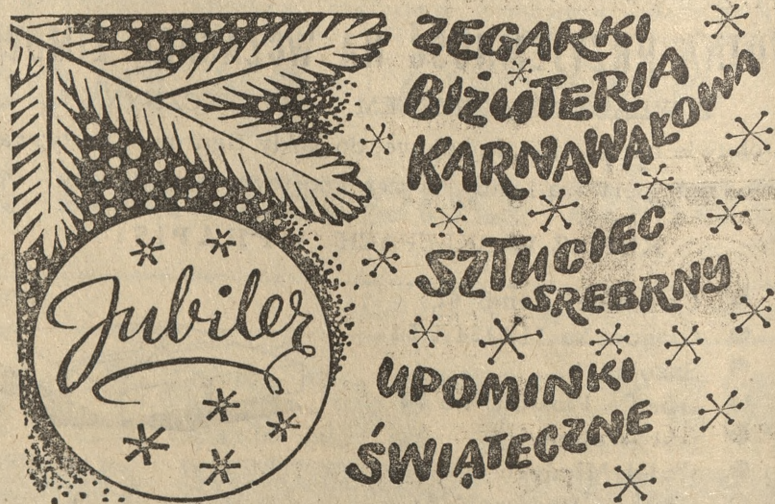 Jubiler
ZEGARKI
BIŻUTERIA
KARNAWAŁOWA
SZTUCIEC
SREBRNY
UPOMINKI
ŚWIĄTECZNE